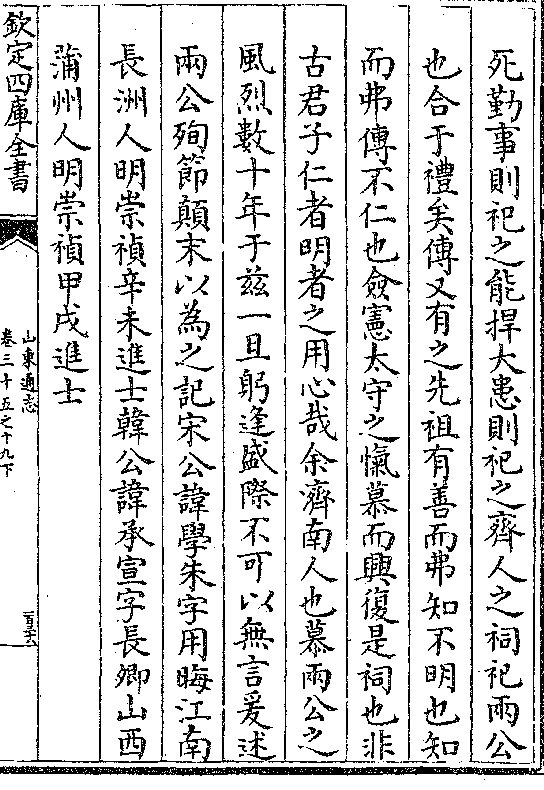 死勤事則祀之能捍大患則祀之齊人之祠祀兩公
也合于禮矣傳又有之先祖有善而弗知不明也知
而弗傳不仁也僉憲太守之愾慕而興復是祠也非
古君子仁者明者之用心哉余濟南人也慕兩公之
風烈數十年于兹一旦躬逢盛際不可以無言爰述
兩公殉節顛末以為之記宋公諱學朱字用晦江南
長洲人明崇禎辛未進士韓公諱承宣字長卿山西
蒲州人明崇禎甲戌進士
欽定四庫全書
山東通志
卷三十五之十九下